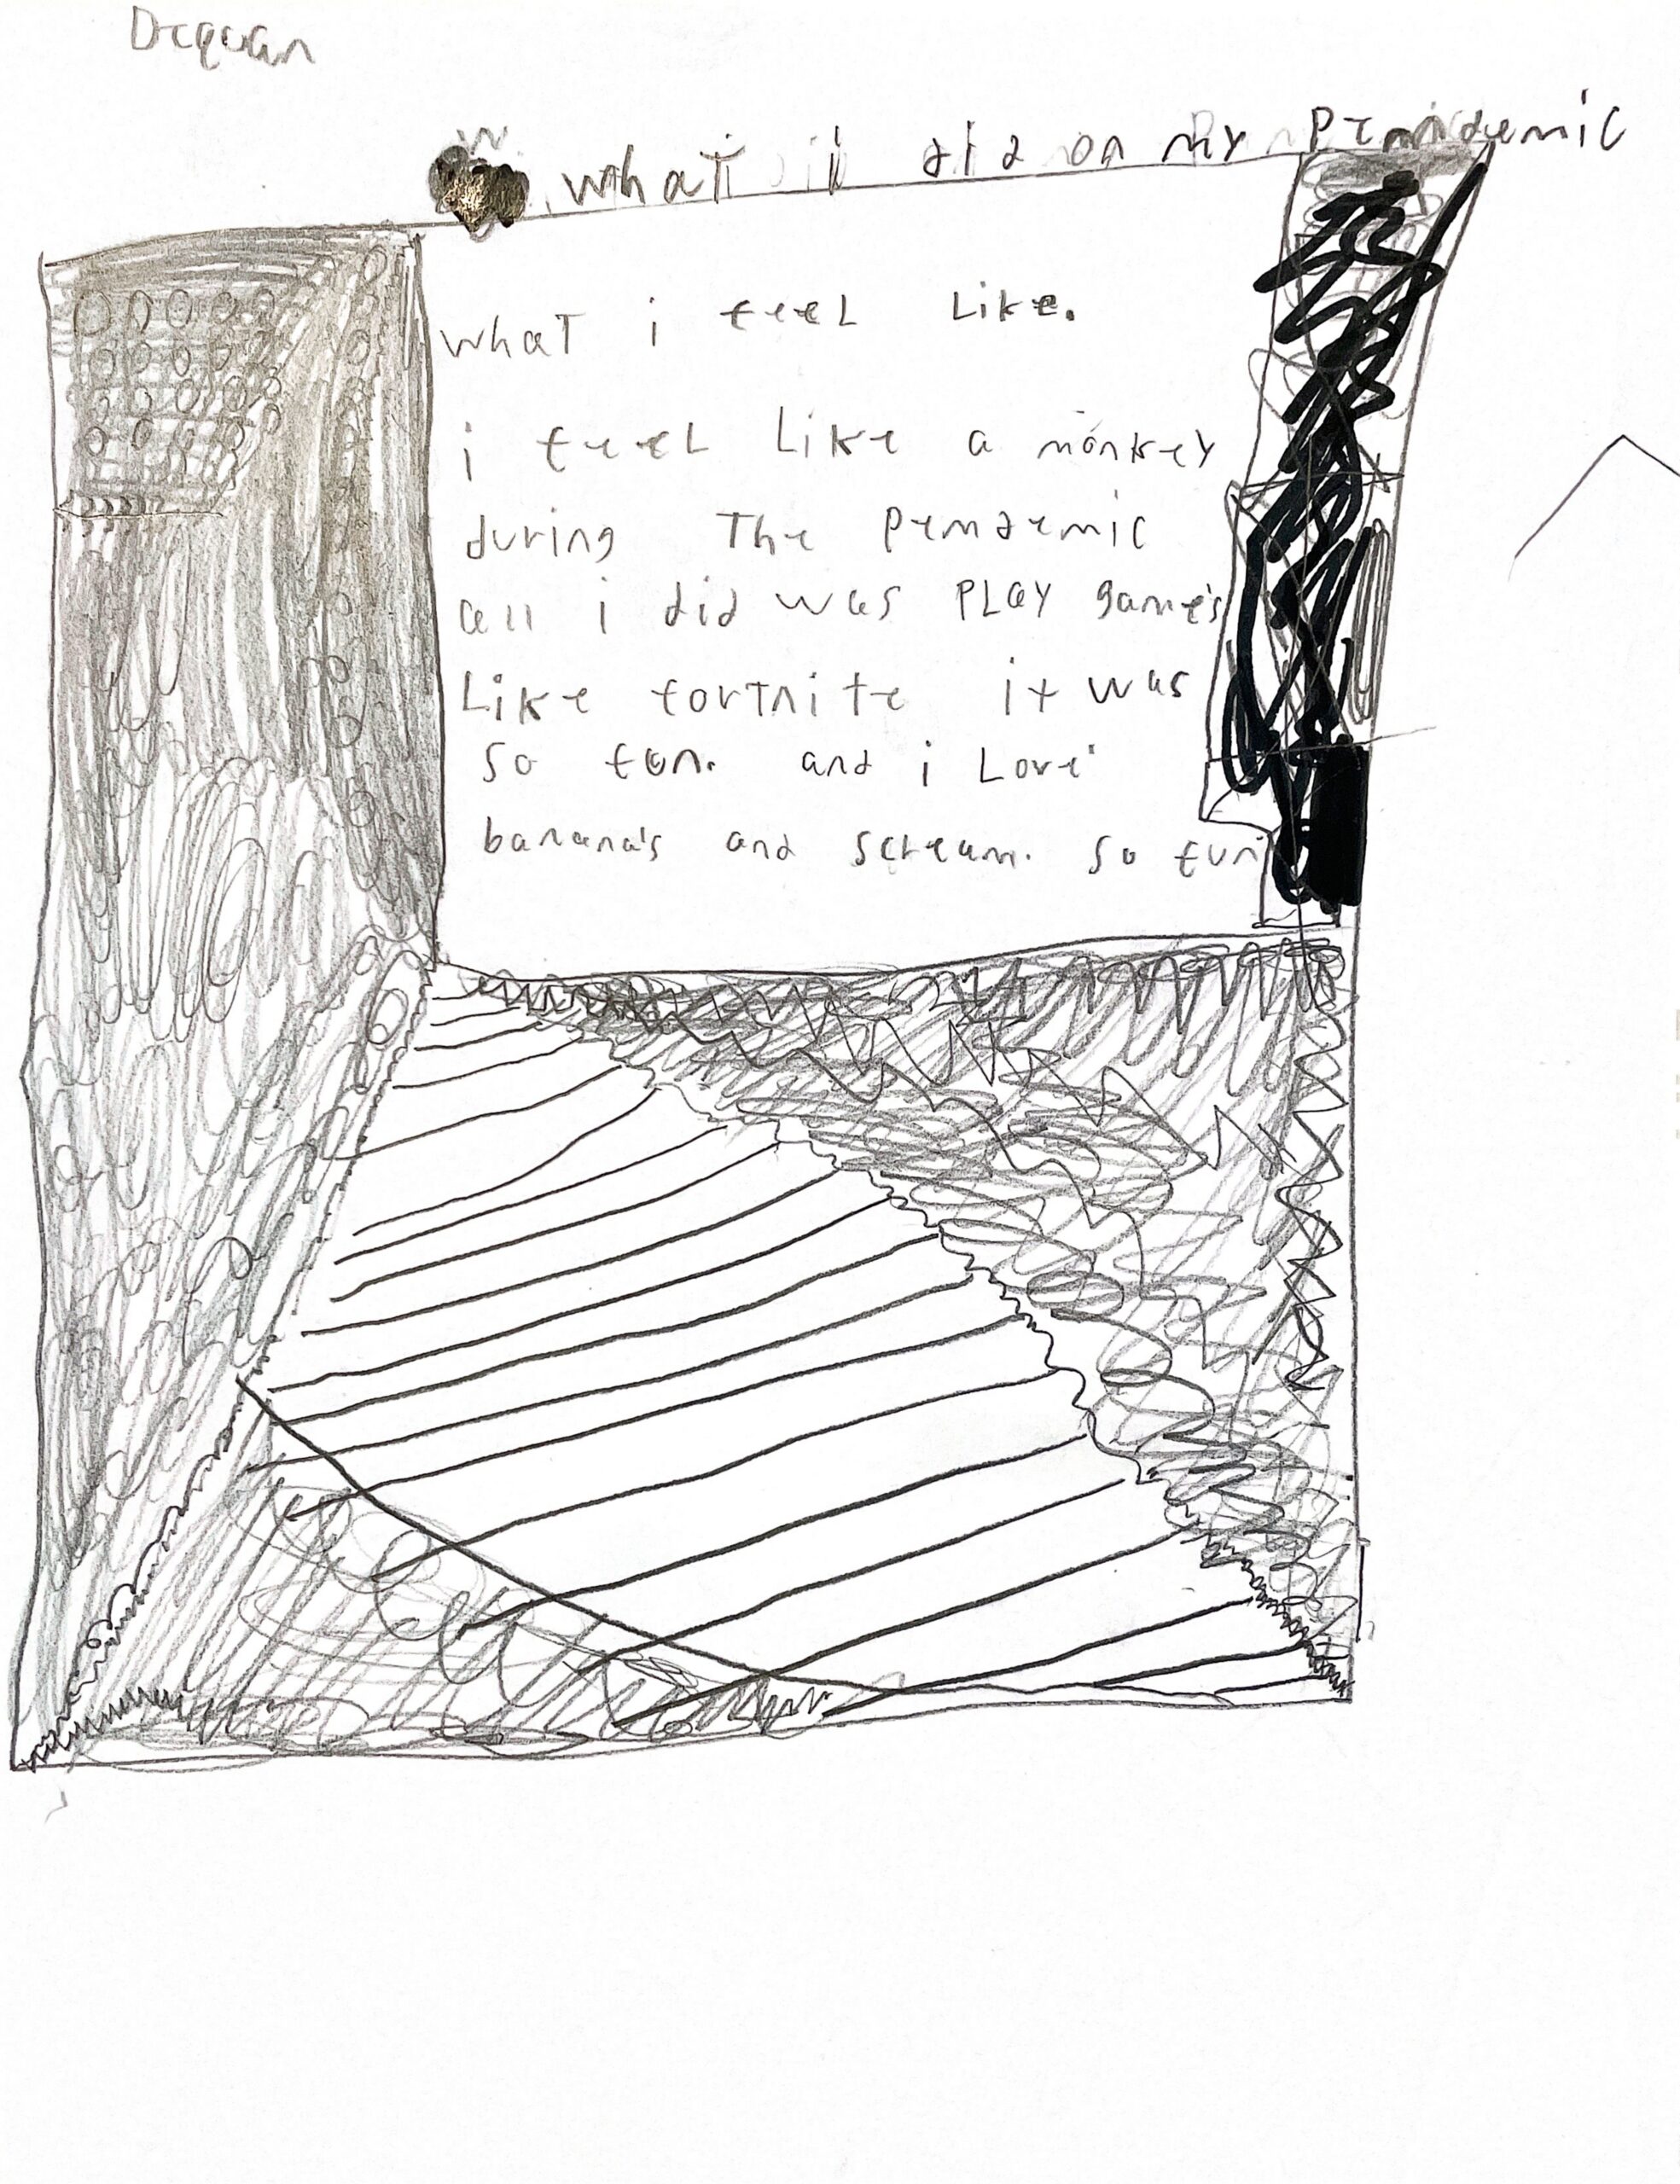 Dequan
what i did on my Pendemic
what i feel Like.
i feel Like a monkey
during The Pemdemic
all i did was PLay game's
Like fortnite it was
so fun. and i Love
banana's and scream. so fun